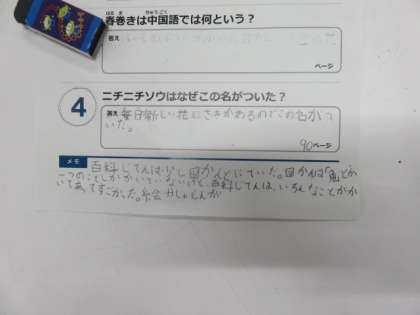 はるま ちゅうごくご
春巻きは中国語では何という？
答え
ページ
4 ニチニチソウはなぜこの名がついた？
答え 毎日新しい花にさきかわるのでこの名がつ
いた。
90ページ
メモ 百科じてんは少し図かんとにていた。図かんは「魚」とか
一つのことしかかいていないけど、百科じてんは、いろんなことがか
いてあてすごかった。